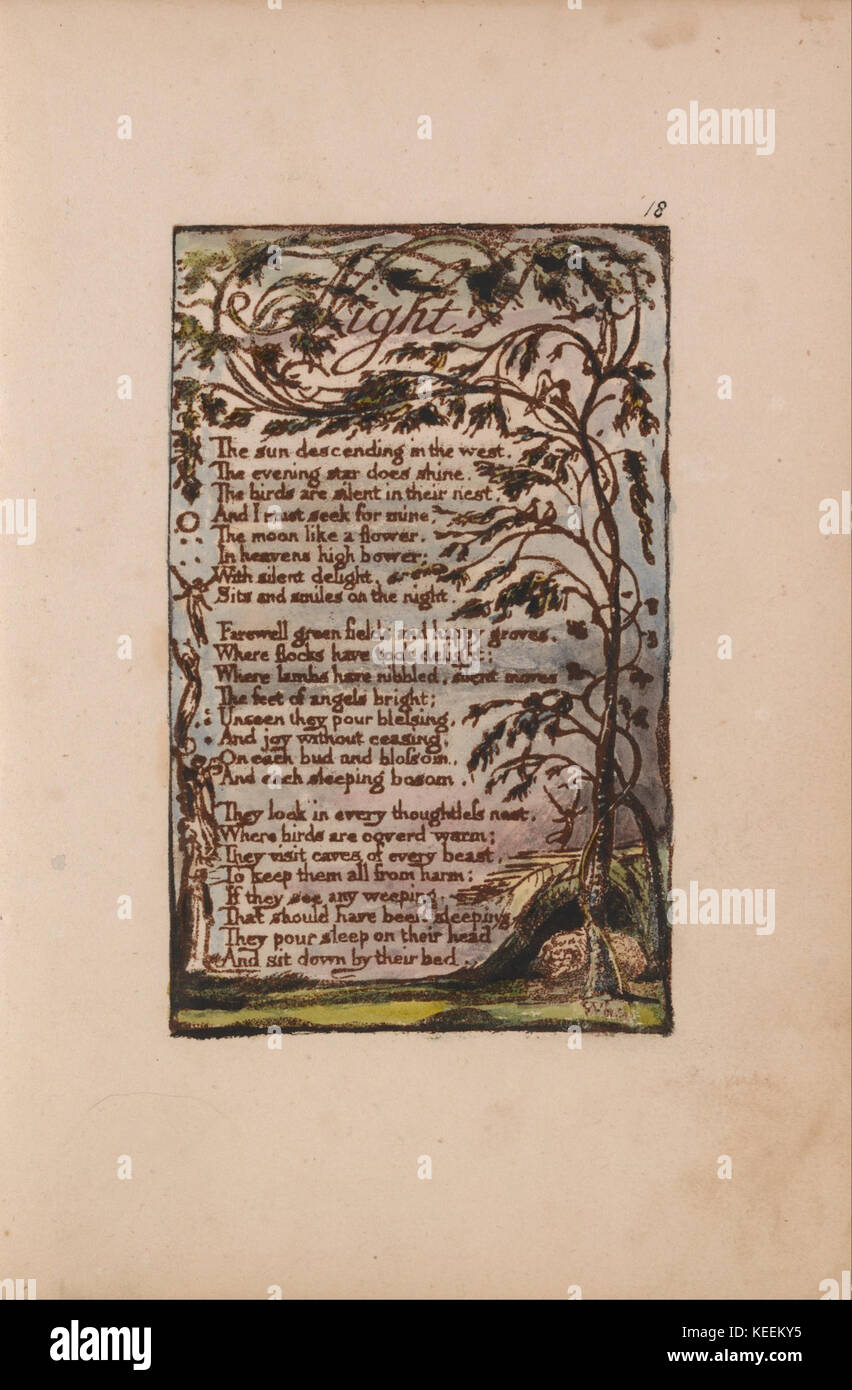 18
Night
The sun descending in the west.
The evening star does shine.
The birds are silent in their nest.
And I must seek for mine,
The moon like a flower,
In heavens high bower;
With silent delight,
Sits and smiles on the night.
Farewell green fields and happy groves,
Where flocks have took delight;
Where lambs have nibbled, silent moves
The feet of angels bright;
Unseen they pour blefsing,
And joy without ceasing,
On each bud and blofsom,
And each sleeping bosom.
They look in every thoughtlefs nest,
Where birds are coverd warm;
They visit caves of every beast,
To keep them all from harm;
If they see any weeping,
That should have been sleeping
They pour sleep on their head
And sit down by their bed.
alamy
alamy
Image ID: KEEKY5
www.alamy.com